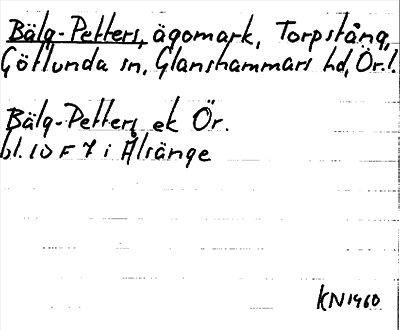 Bälg-Petters, ägomark, Torpstång,
Götlunda sn, Glanshammars hd, Ör.l.
Bälg-Petters ek Ör.
bl. 10 F 7 i Älsänge
KN1960